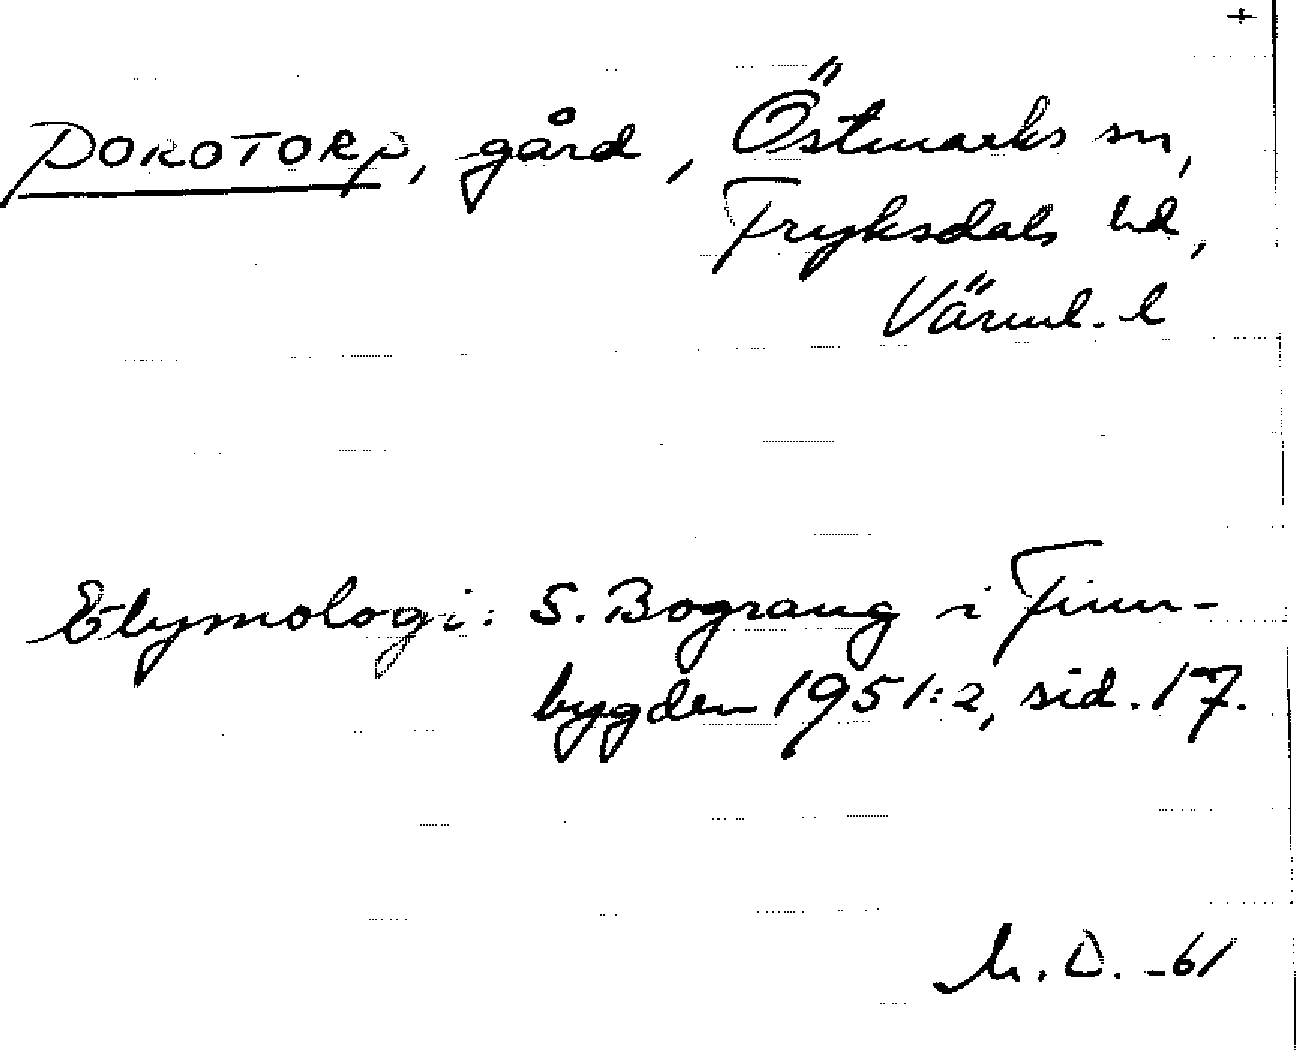 +
DOROTORP, gård, Östmarks sn,
Fryksdals hd,
Värml. l
Etymologi: S. Bograng i Finn-
bygden 1951:2, sid. 17.
M. D. -61